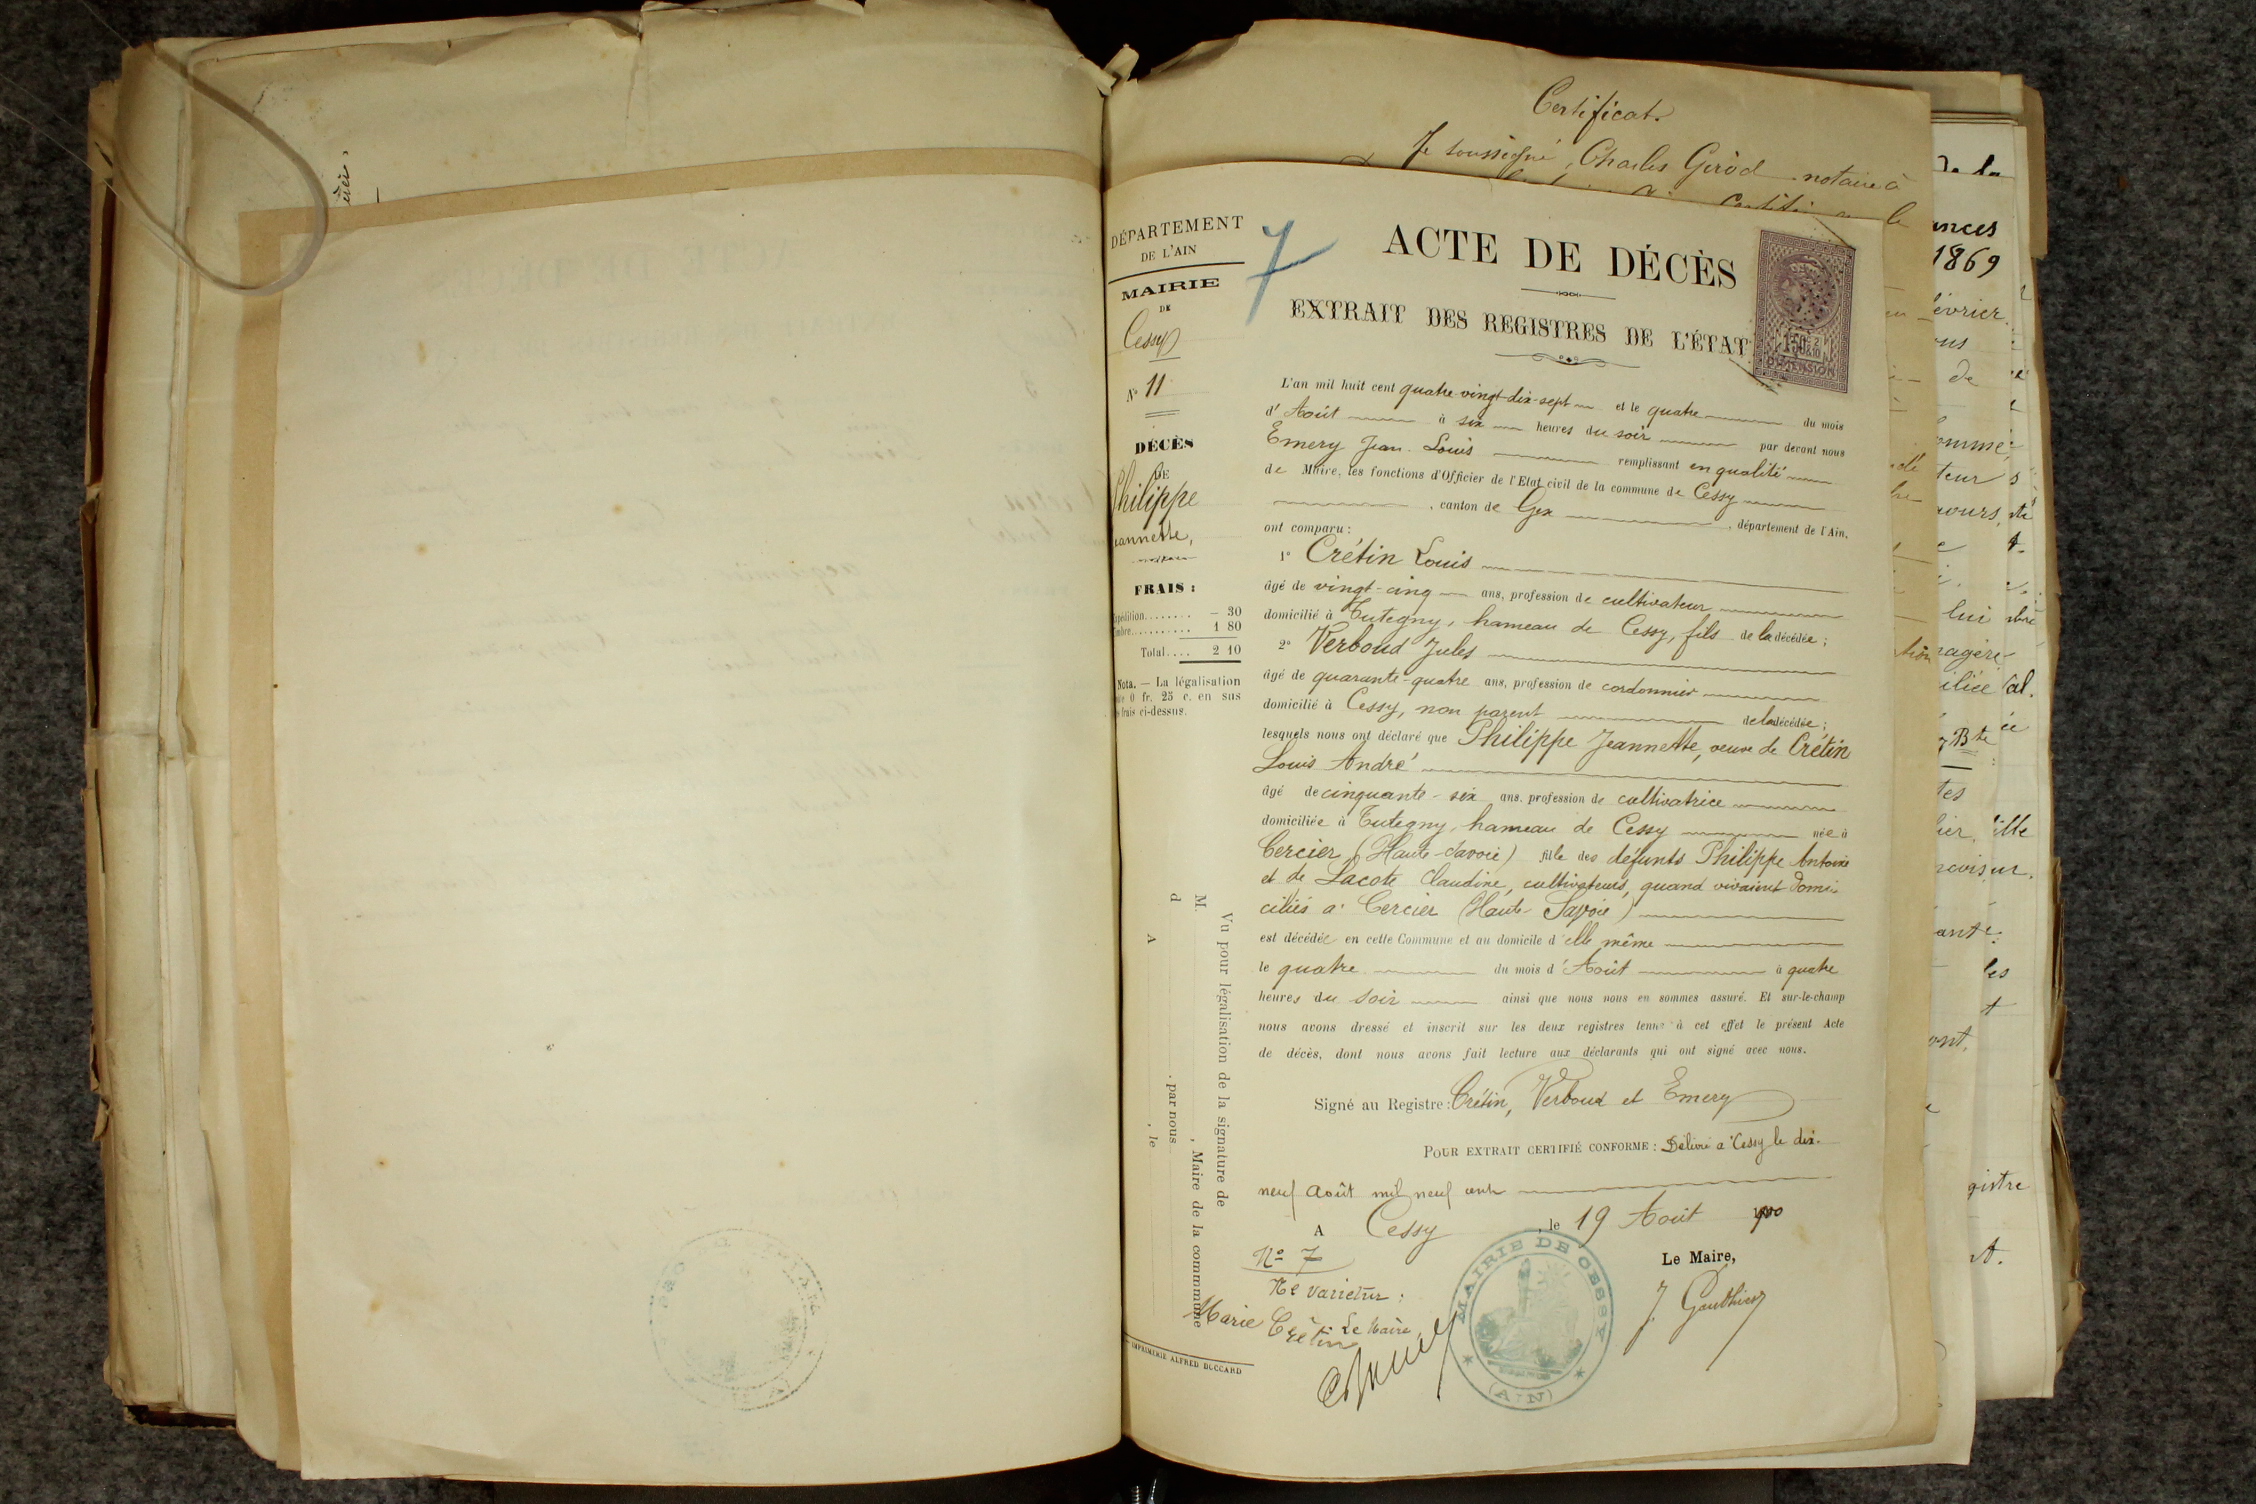 Certificat.
Je soussigné, Charles Girod notaire à
DÉPARTEMENT
DE L'AIN
MAIRIE
DE
Cessy
N° 11
DÉCÈS
DE
Philippe
eannette,
FRAIS :
pédition........ – 30
mbre.......... 1 80
Total.... 2 10
Nota. — La légalisation
0 fr. 25 c. en sus
frais ci-dessus.
Vu pour légalisation de la signature de
M. , Maire de la commmune
d , par nous
A , le
IMPRIMERIE ALFRED DUCCARD
7
ACTE DE DÉCÈS
EXTRAIT DES REGISTRES DE L'ÉTAT
DIMENSION
L'an mil huit cent quatre-vingt-dix-sept et le quatre du mois
d'Août à six heures du soir par devant nous
Emery Jean-Louis remplissant en qualité
de Maire, les fonctions d'Officier de l'Etat civil de la commune de Cessy
, canton de Gex , département de l'Ain,
ont comparu :
1° Crétin Louis
âgé de vingt-cinq ans, profession de cultivateur
domicilié à Tutegny, hameau de Cessy, fils de la décédée ;
2° Verboud Jules
âgé de quarante-quatre ans, profession de cordonnier
domicilié à Cessy, non parent de la décédée ;
lesquels nous ont déclaré que Philippe Jeannette, veuve de Crétin
Louis André
âgé de cinquante-six ans, profession de cultivatrice
domiciliée à Tutegny, hameau de Cessy née à
Cercier (Haute-Savoie) fille des défunts Philippe Antoine
et de Lacote Claudine, cultivateurs, quand vivaient domi-
ciliés à Cercier (Haute-Savoie)
est décédée en cette Commune et au domicile d'elle même
le quatre du mois d'Août à quatre
heures du soir ainsi que nous nous en sommes assuré. Et sur-le-champ
nous avons dressé et inscrit sur les deux registres tenus à cet effet le présent Acte
de décès, dont nous avons fait lecture aux déclarants qui ont signé avec nous.
Signé au Registre : Crétin, Verboud et Emery
POUR EXTRAIT CERTIFIÉ CONFORME : Délivré à Cessy le dix-
neuf août mil neuf cent
A Cessy , le 19 Août 1900
Le Maire,
J. Gauthier
N° 7
Ne varietur :
Marie Crétin
Le Maire,
MAIRIE DE CESSY
(AIN)
de la
ances
1869
évrier
ous
de
lui
tes
ante
les
gistre